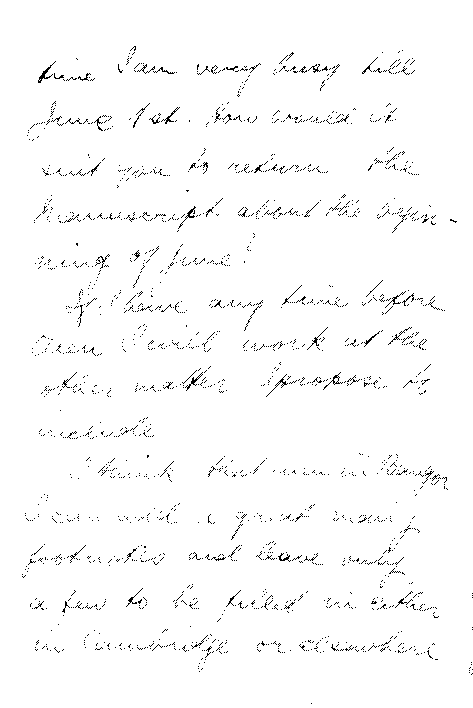 time I am very busy till
June 1st. How would it
suit you to return the
Manuscript about the begin-
ning of June?
If I have any time before
then I will work at the
other matter I propose to
include
I think that now in Bangor
I can add a great many
footnotes and leave only
a few to be filled in either
in Cambridge or elsewhere